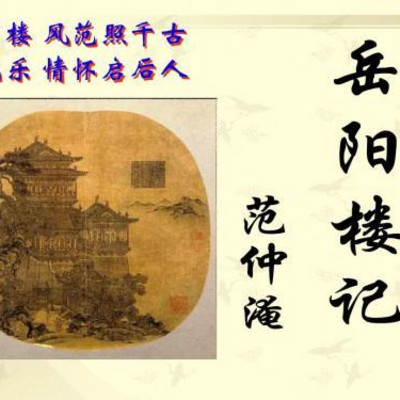 楼 风范照千古
乐 情怀启后人
岳阳楼记
范仲淹